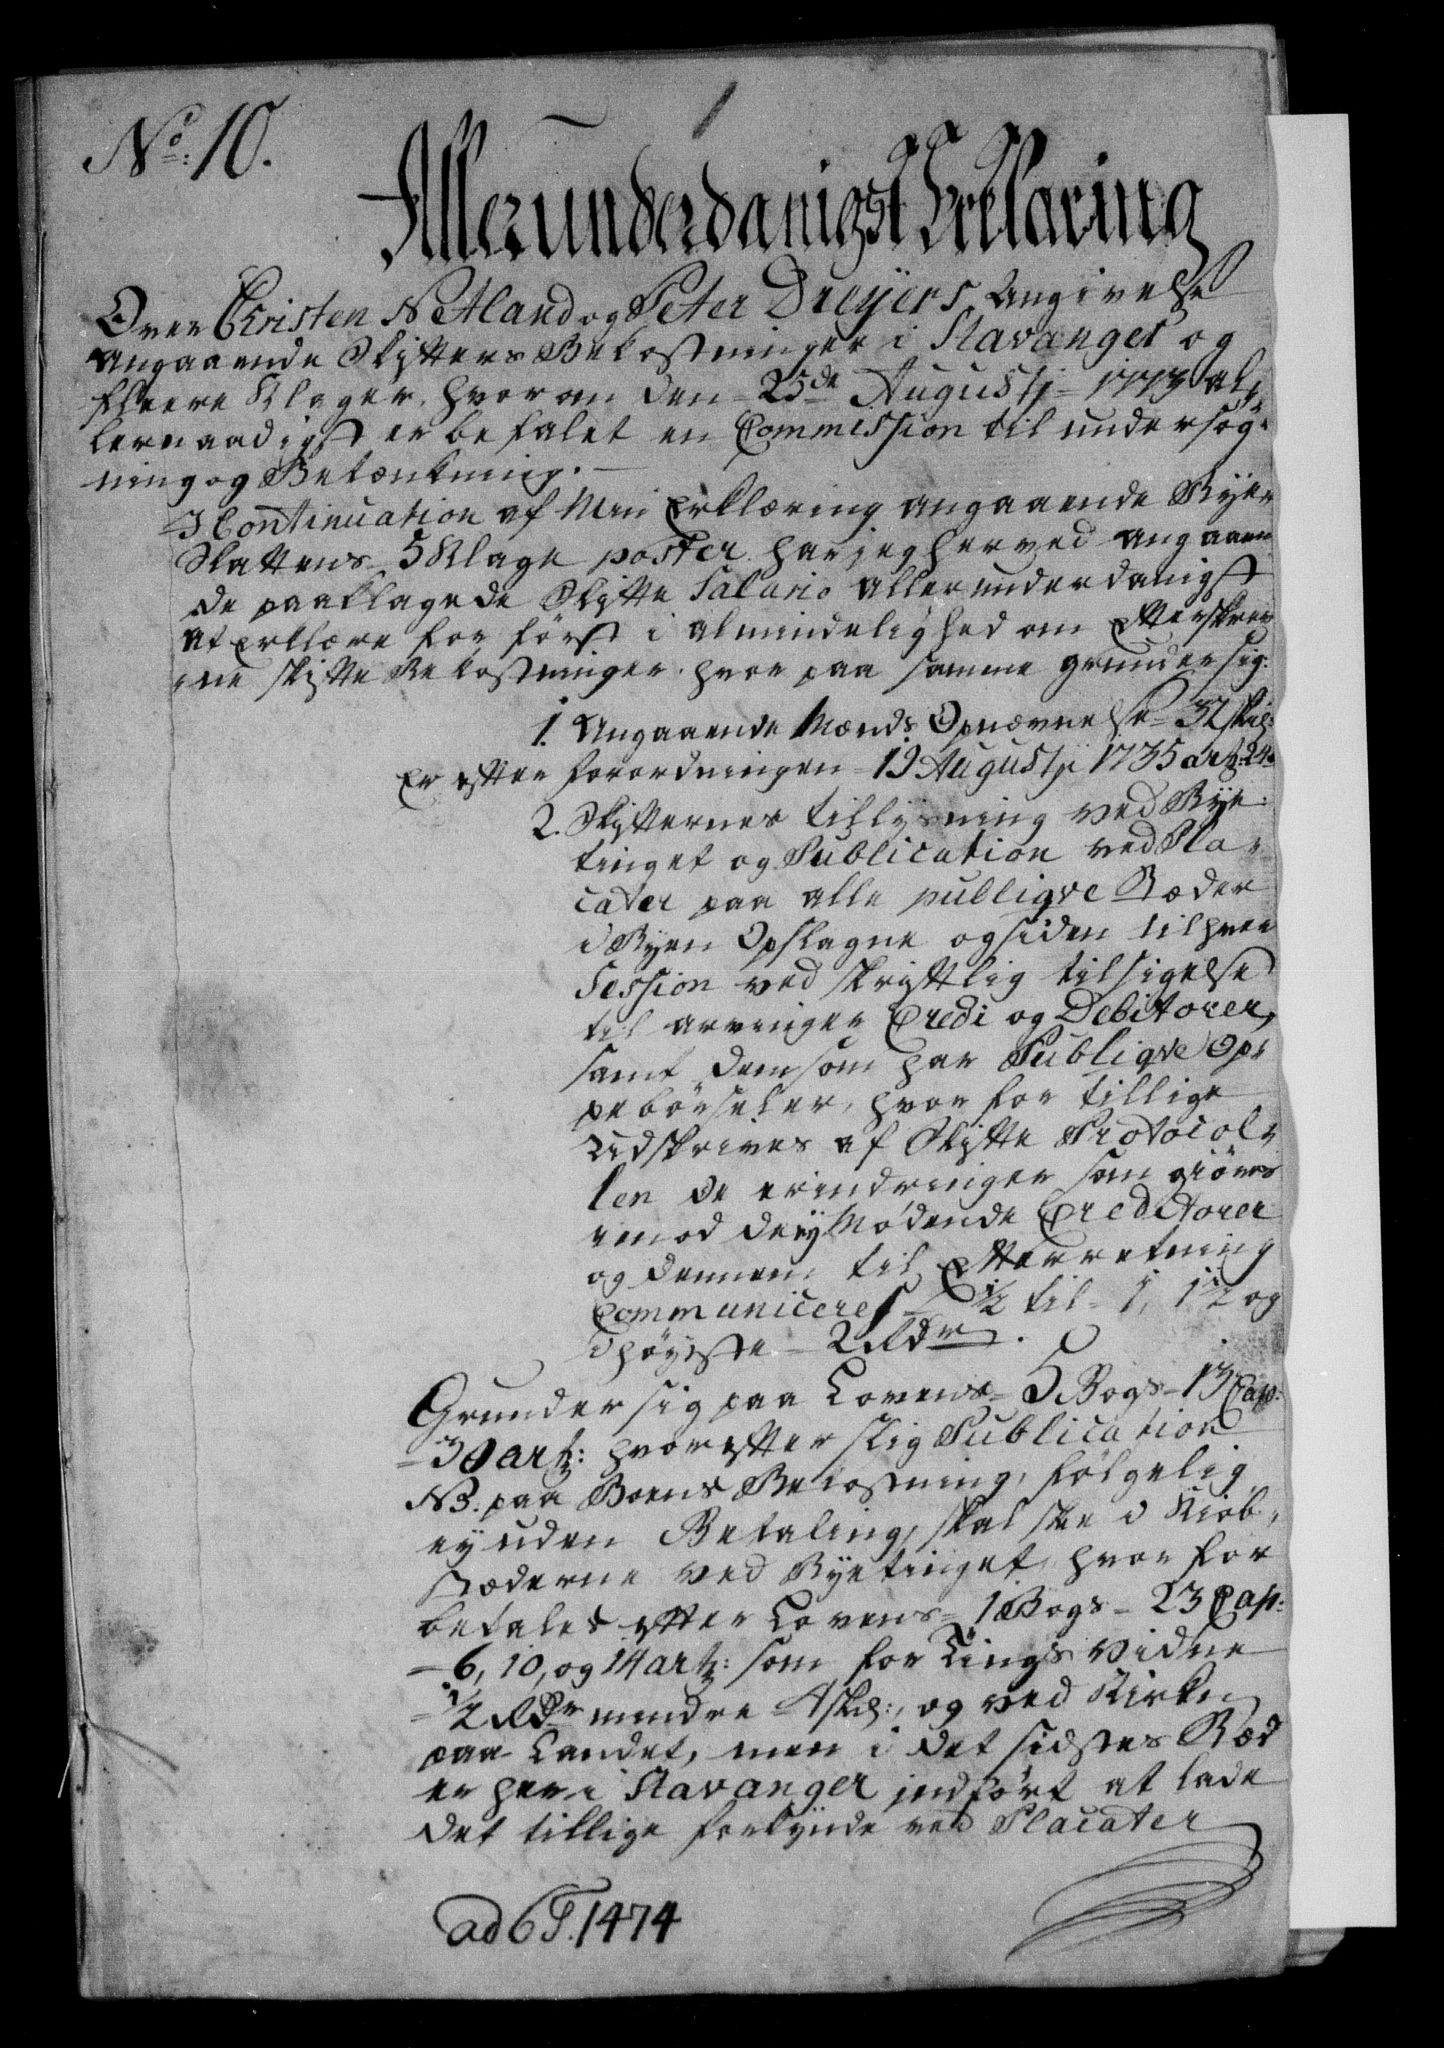 1
No: 10.
Allerunderdanigst Erklæring
Over Christen Netland og Peter Dreÿers Angivelse
angaaende Skifters Bekostninger i Stavanger og
fleere Klager, hvorom den 25de Augustj 1773 al,
lernaadigst er befalet en Commission til undersøg-
ning og Betænkning. —
I Continuation af Min Erklæring angaaende Bÿe
Skattens 5 Klage poster har jeg herved angaaen
de paaklagede Skifte Salario allerunderdanigst
at erklære for først i almindelighed om Efterskrev
ne skifte Bekostninger, hvor paa samme grunder sig:
1. Angaaende Mænds Opnævnelse 32 skil:
er efter forordningen 19 Augustj 1735 art: 24.
2. Skifternes tillysning ved Bÿe-
tinget og Publication ved Pla-
cater paa alle publiqve Stæder
i Byen Opslagne og siden til hver
Session ved skriftlig tilsigelse
til arvinger Credi og Debitorer,
samt dem som har Publiqve Op-
pebørseler, hvor for tillige
Udskrives af Skifte Protocol-
len de erindringer som giøres
imod deris Mødende Creditorer
og dennem til Efterretning
Communiceres — 1/2 til 1, 1 1/2 og
i høyeste — 2 Rdr.
Grunder sig paa Lovens 5 Bogs 13 Cap:
art: hvorefter slig Publication
NB. paa Boens Bekostning, følgelig
ey uden Betaling, skal skee i Kiøb-
stæderne ved Byetinget, hvor for
betales efter Lovens 1 Bogs 23 Cap:
6, 10, og 14 art: som for Tings Vidne
1/2 Rdr mindre 4 sk:, og ved Kirken
paa Landet, men i det sidstes Stæd
er her i Stavanger indført at lade
det tillige forkÿnde ved Placater
ad 6 T. 1474